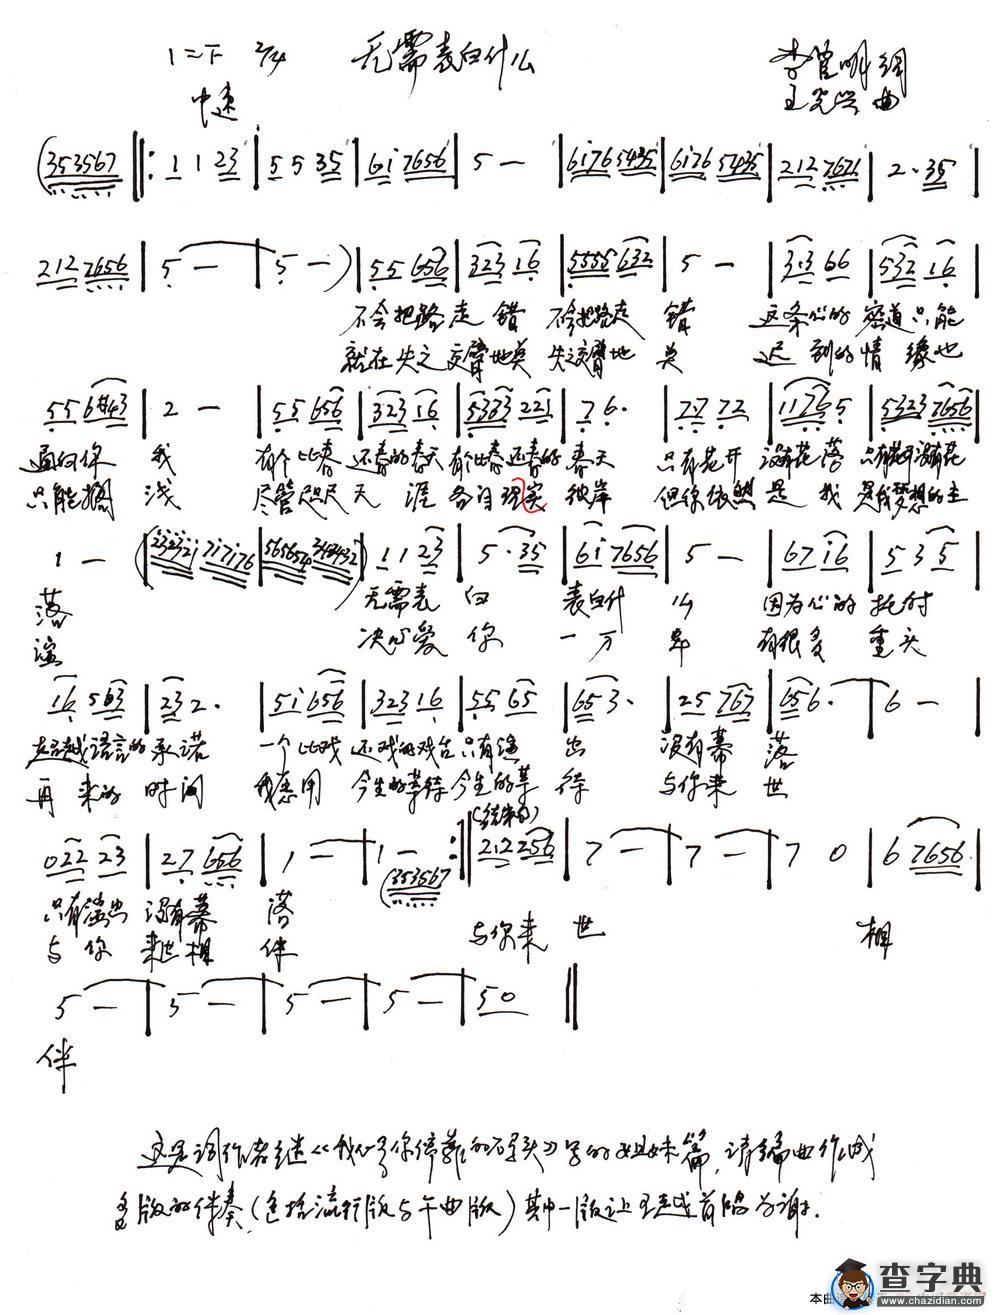 1=F 2/4 无需表白什么 李官明 词
中速 王 曲
(353567 ‖: 1 1 23 | 5 5 35 | 6i 7656 | 5 — | 6i76 5435 | 6i76 5435 | 212 7671 | 2· 35 |
212 7656 | 5 — | 5 — ) | 55 656 | 323 16 | 5555 632 | 5 — | 3·3 66 | 532 16 |
不会把路走错 不会把路走 错 这条心的密道只能
就在失之交臂地 失之交臂地 迟到的情缘也
556#43 | 2 — | 55 656 | 323 16 | 5333 221 | 7 6· | 77 72 | 1176 5 | 5323 7656 |
通向你 我 有个比春还春的春天 有个比春还春的 春天 只有花开没有花落 只有花开没有花
只能搁 浅 尽管咫尺天涯各自现实 彼岸 但你依然是我 是我梦想的主
1 — | 1 1 23 | 5·35 | 6i 7656 | 5 — | 67 i6 | 5 3 5 |
落 无需表 白 表白什 么 因为心的托付
演 决心爱 你 一万 年 有很多 重头
16 563 | 23 2· | 5i 656 | 323 16 | 55 65 | 65 3· | 25 767 | 656· | 6 — |
超越语言的承诺 一个比戏还戏的戏台 只有演 出 没有幕 落
再来的时间 我愿用 今生的等待今生的等 待 与你来 世
(结束句)
022 23 | 27 656 | 1 — | 1 — (353567 :‖ 212 256 | 7 — | 7 — | 7 0 | 6 7656 |
只有演出 没有幕 落
与你 来世相 伴 与你来 世 相
5 — | 5 — | 5 — | 5 — | 50 ‖
伴
这是词作者继《我以为你停靠的码头》写的姐妹篇,请编曲作成
多版的伴奏,(包括流行版与午曲版)其中一版让王越首唱为谢.
查字典
www.chazidian.com
本曲